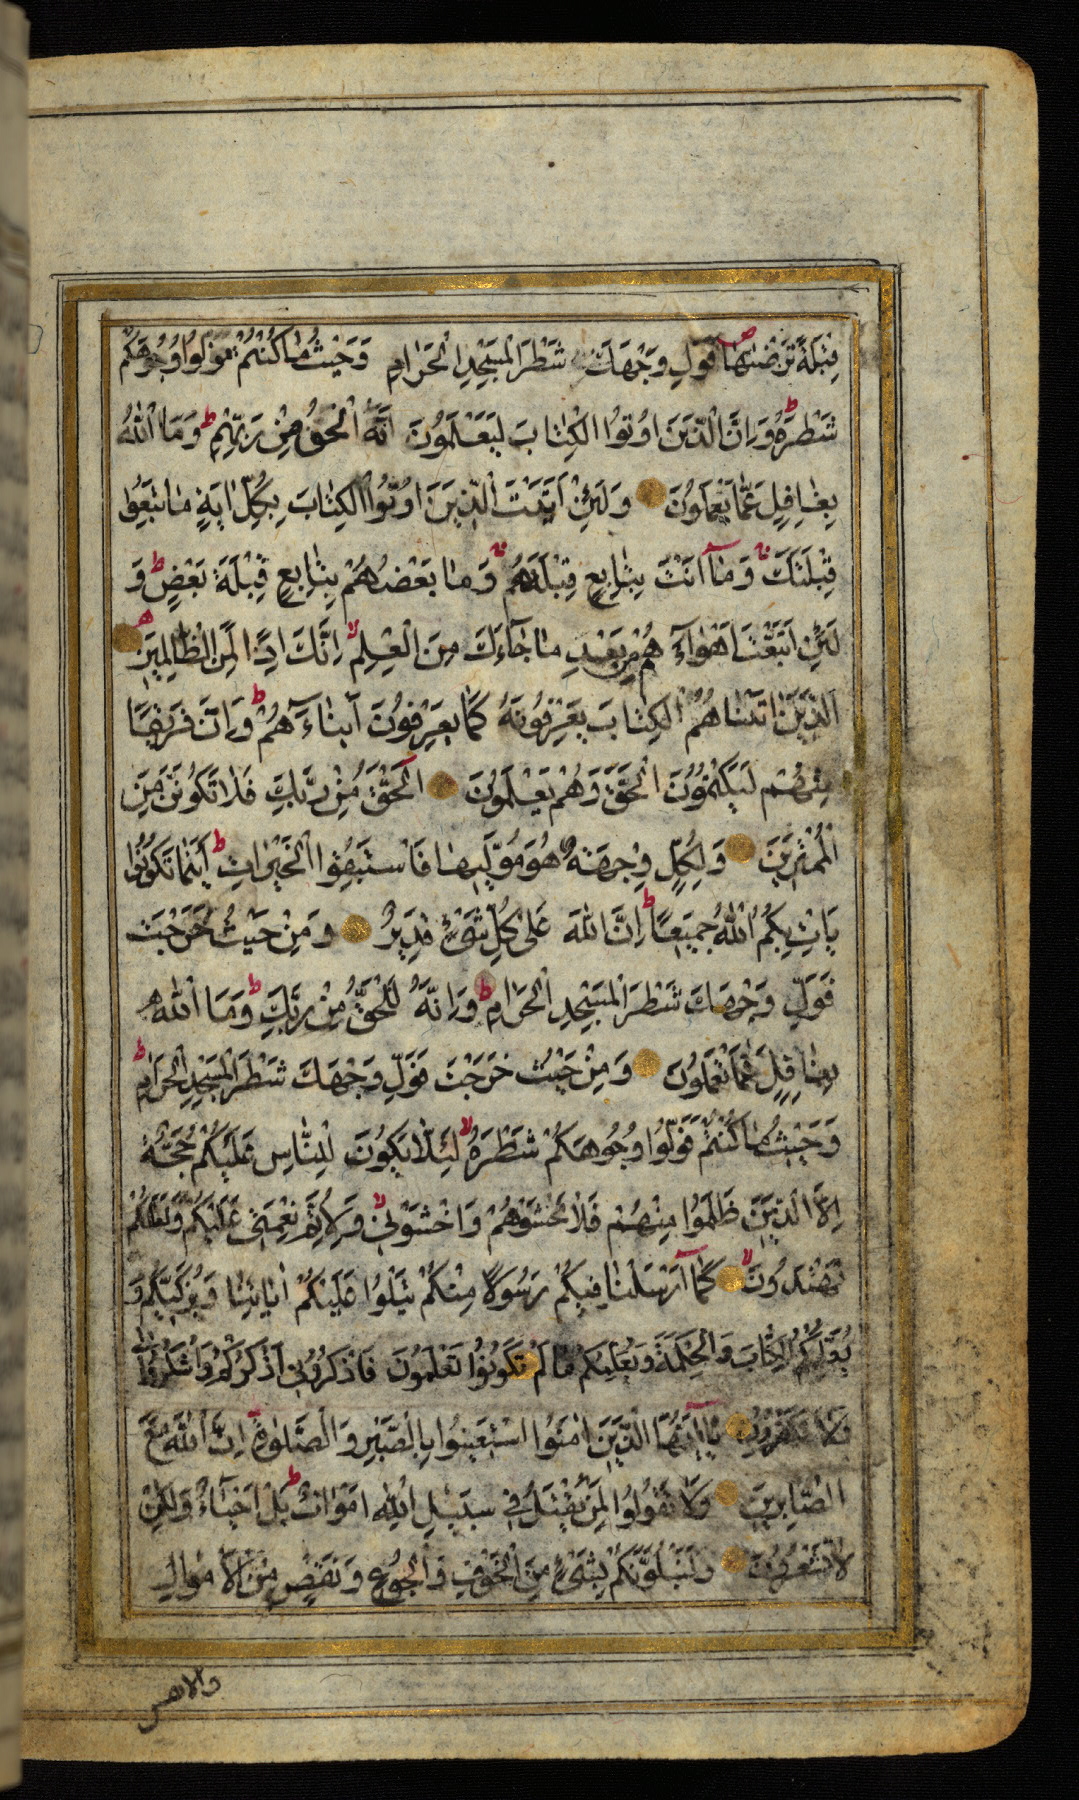 قِبْلَةً تَرْضٰىهَا فَوَلِّ وَجْهَكَ شَطْرَ الْمَسْجِدِ الْحَرَامِ وَحَيْثُ مَا كُنْتُمْ فَوَلُّوا وُجُوهَكُمْ
شَطْرَهُ وَاِنَّ الَّذِينَ اُوتُوا الْكِتَابَ لَيَعْلَمُونَ اَنَّهُ الْحَقُّ مِنْ رَبِّهِمْ ط وَمَا اللّٰهُ
بِغَافِلٍ عَمَّا يَعْمَلُونَ وَلَئِنْ اَتَيْتَ الَّذِينَ اُوتُوا الْكِتَابَ بِكُلِّ اٰيَةٍ مَا تَبِعُوا
قِبْلَتَكَ وَمَآ اَنْتَ بِتَابِعٍ قِبْلَتَهُمْ وَمَا بَعْضُهُمْ بِتَابِعٍ قِبْلَةَ بَعْضٍ ط وَ
لَئِنِ اتَّبَعْتَ اَهْوَآءَ هُمْ مِنْ بَعْدِ مَا جَآءَكَ مِنَ الْعِلْمِ لا اِنَّكَ اِذًا لَمِنَ الظَّالِمِينَ
اَلَّذِينَ اٰتَيْنَاهُمُ الْكِتَابَ يَعْرِفُونَهُ كَمَا يَعْرِفُونَ اَبْنَآءَ هُمْ ط وَاِنَّ فَرِيقًا
مِنْهُمْ لَيَكْتُمُونَ الْحَقَّ وَهُمْ يَعْلَمُونَ اَلْحَقُّ مِنْ رَبِّكَ فَلَا تَكُونَنَّ مِنَ
الْمُمْتَرِينَ وَلِكُلٍّ وِجْهَةٌ هُوَ مُوَلِّيهَا فَاسْتَبِقُوا الْخَيْرَاتِ ط اَيْنَمَا تَكُونُوا
يَاْتِ بِكُمُ اللّٰهُ جَمِيعًا ط اِنَّ اللّٰهَ عَلٰى كُلِّ شَىْءٍ قَدِيرٌ وَمِنْ حَيْثُ خَرَجْتَ
فَوَلِّ وَجْهَكَ شَطْرَ الْمَسْجِدِ الْحَرَامِ ط وَاِنَّهُ لَلْحَقُّ مِنْ رَبِّكَ ط وَمَا اللّٰهُ
بِغَافِلٍ عَمَّا تَعْمَلُونَ وَمِنْ حَيْثُ خَرَجْتَ فَوَلِّ وَجْهَكَ شَطْرَ الْمَسْجِدِ الْحَرَامِ ط
وَحَيْثُ مَا كُنْتُمْ فَوَلُّوا وُجُوهَكُمْ شَطْرَهُ لا لِئَلَّا يَكُونَ لِلنَّاسِ عَلَيْكُمْ حُجَّةٌ
اِلَّا الَّذِينَ ظَلَمُوا مِنْهُمْ فَلَا تَخْشَوْهُمْ وَاخْشَوْنِى لا وَلِاُتِمَّ نِعْمَتِى عَلَيْكُمْ وَلَعَلَّكُمْ
تَهْتَدُونَ لا كَمَآ اَرْسَلْنَا فِيكُمْ رَسُولًا مِنْكُمْ يَتْلُوا عَلَيْكُمْ اٰيَاتِنَا وَيُزَكِّيكُمْ وَ
يُعَلِّمُكُمُ الْكِتَابَ وَالْحِكْمَةَ وَيُعَلِّمُكُمْ مَا لَمْ تَكُونُوا تَعْلَمُونَ فَاذْكُرُونِى اَذْكُرْكُمْ وَاشْكُرُوا لِى
وَلَا تَكْفُرُونِ يَآ اَيُّهَا الَّذِينَ اٰمَنُوا اسْتَعِينُوا بِالصَّبْرِ وَالصَّلٰوةِ اِنَّ اللّٰهَ مَعَ
الصَّابِرِينَ وَلَا تَقُولُوا لِمَنْ يُقْتَلُ فِى سَبِيلِ اللّٰهِ اَمْوَاتٌ ط بَلْ اَحْيَآءٌ وَلٰكِنْ
لَا تَشْعُرُونَ وَلَنَبْلُوَنَّكُمْ بِشَىْءٍ مِنَ الْخَوْفِ وَالْجُوعِ وَنَقْصٍ مِنَ الْاَمْوَالِ
والانفس